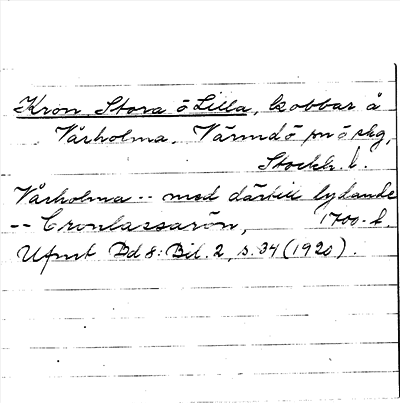 Kron, Stora o Lilla, kobbar å
Vårholma, Värmdö sn o skg,
Stockh. l.
Vårholma -- med därtill lydande
-- Cronlassarön, 1700-t.
Ufmt Bd 8: Bil. 2, s. 34 (1920).